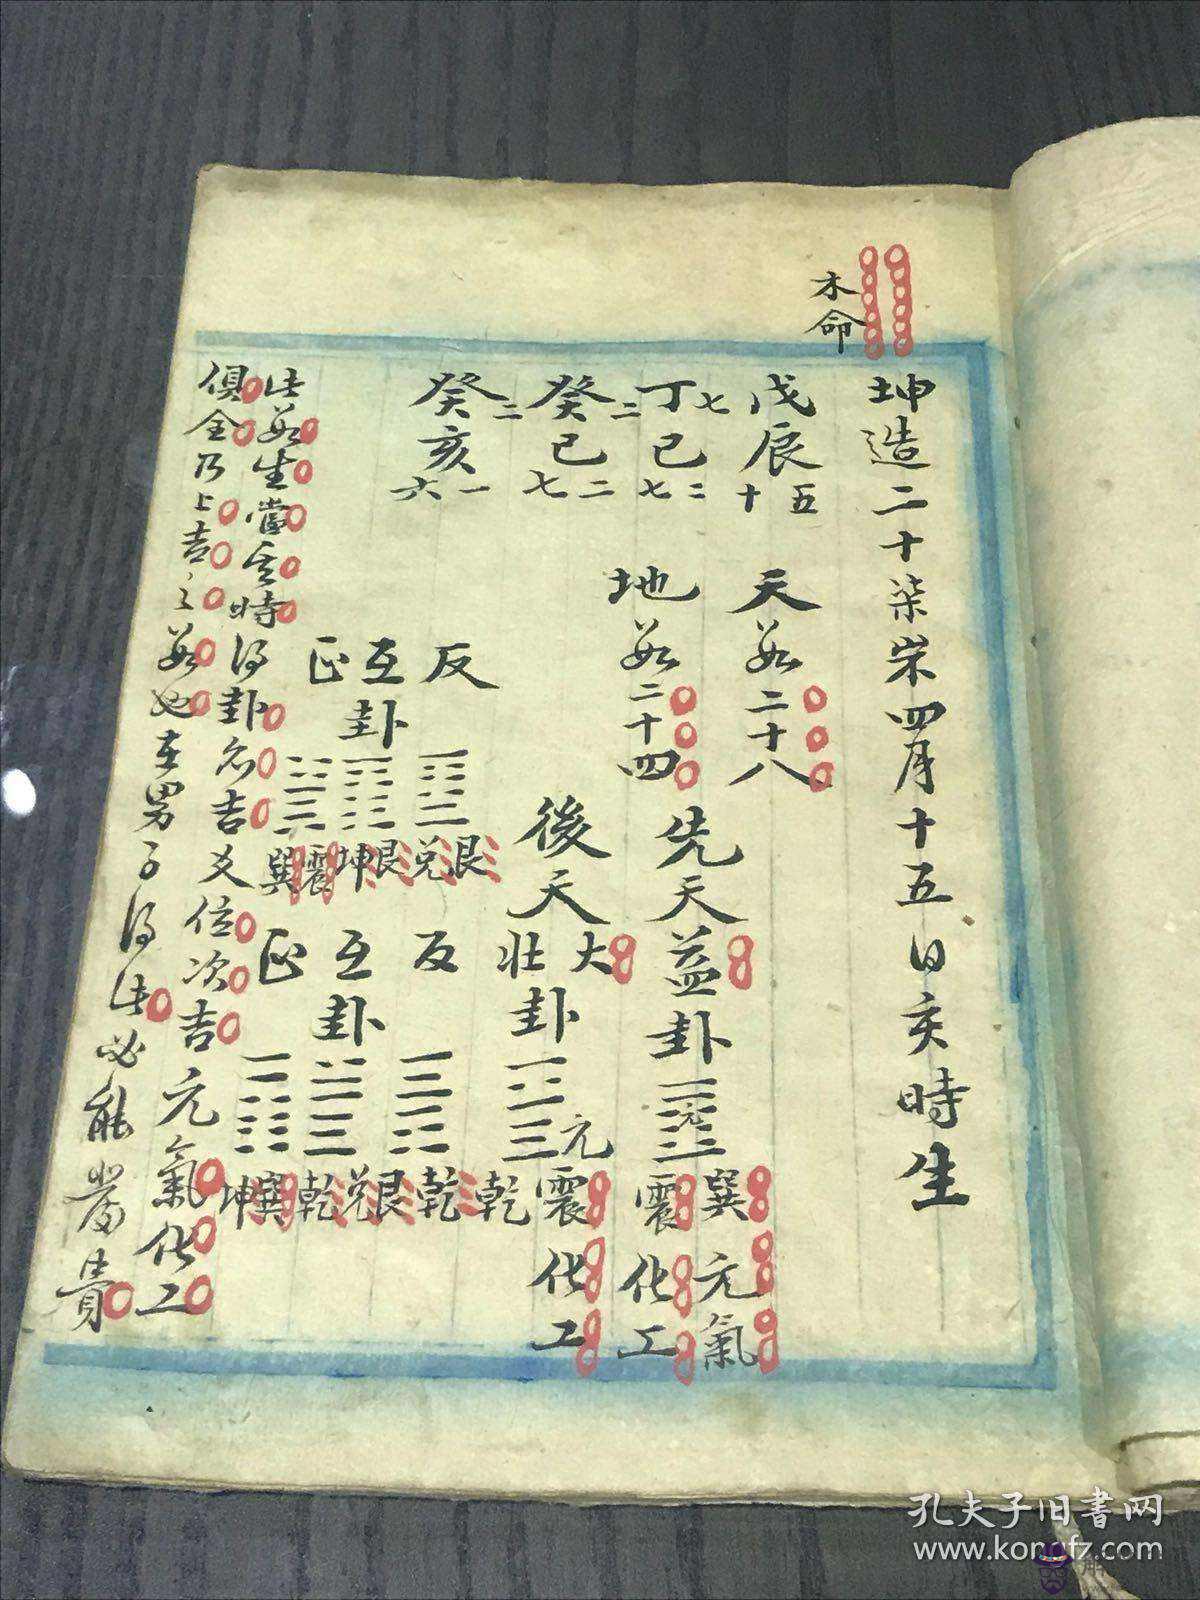 木命
坤造二十柒岁四月十五日亥時生
戊辰 八 十五
丁巳 七 七二
癸巳 二 七二
癸亥 二 六一
天数二十八
地数二十四
先天益卦
元
巽震
元氣
化工
後天大壮卦
元
震乾
化工
反
互卦
正
艮兑
艮坤
震巽
反
互卦
正
乾
艮兑
乾
巽坤
此数生當其時得卦名吉爻位次吉元氣化工
俱全乃上吉之数也在男子得此必能發貴
孔夫子旧書网
www.kongfz.com